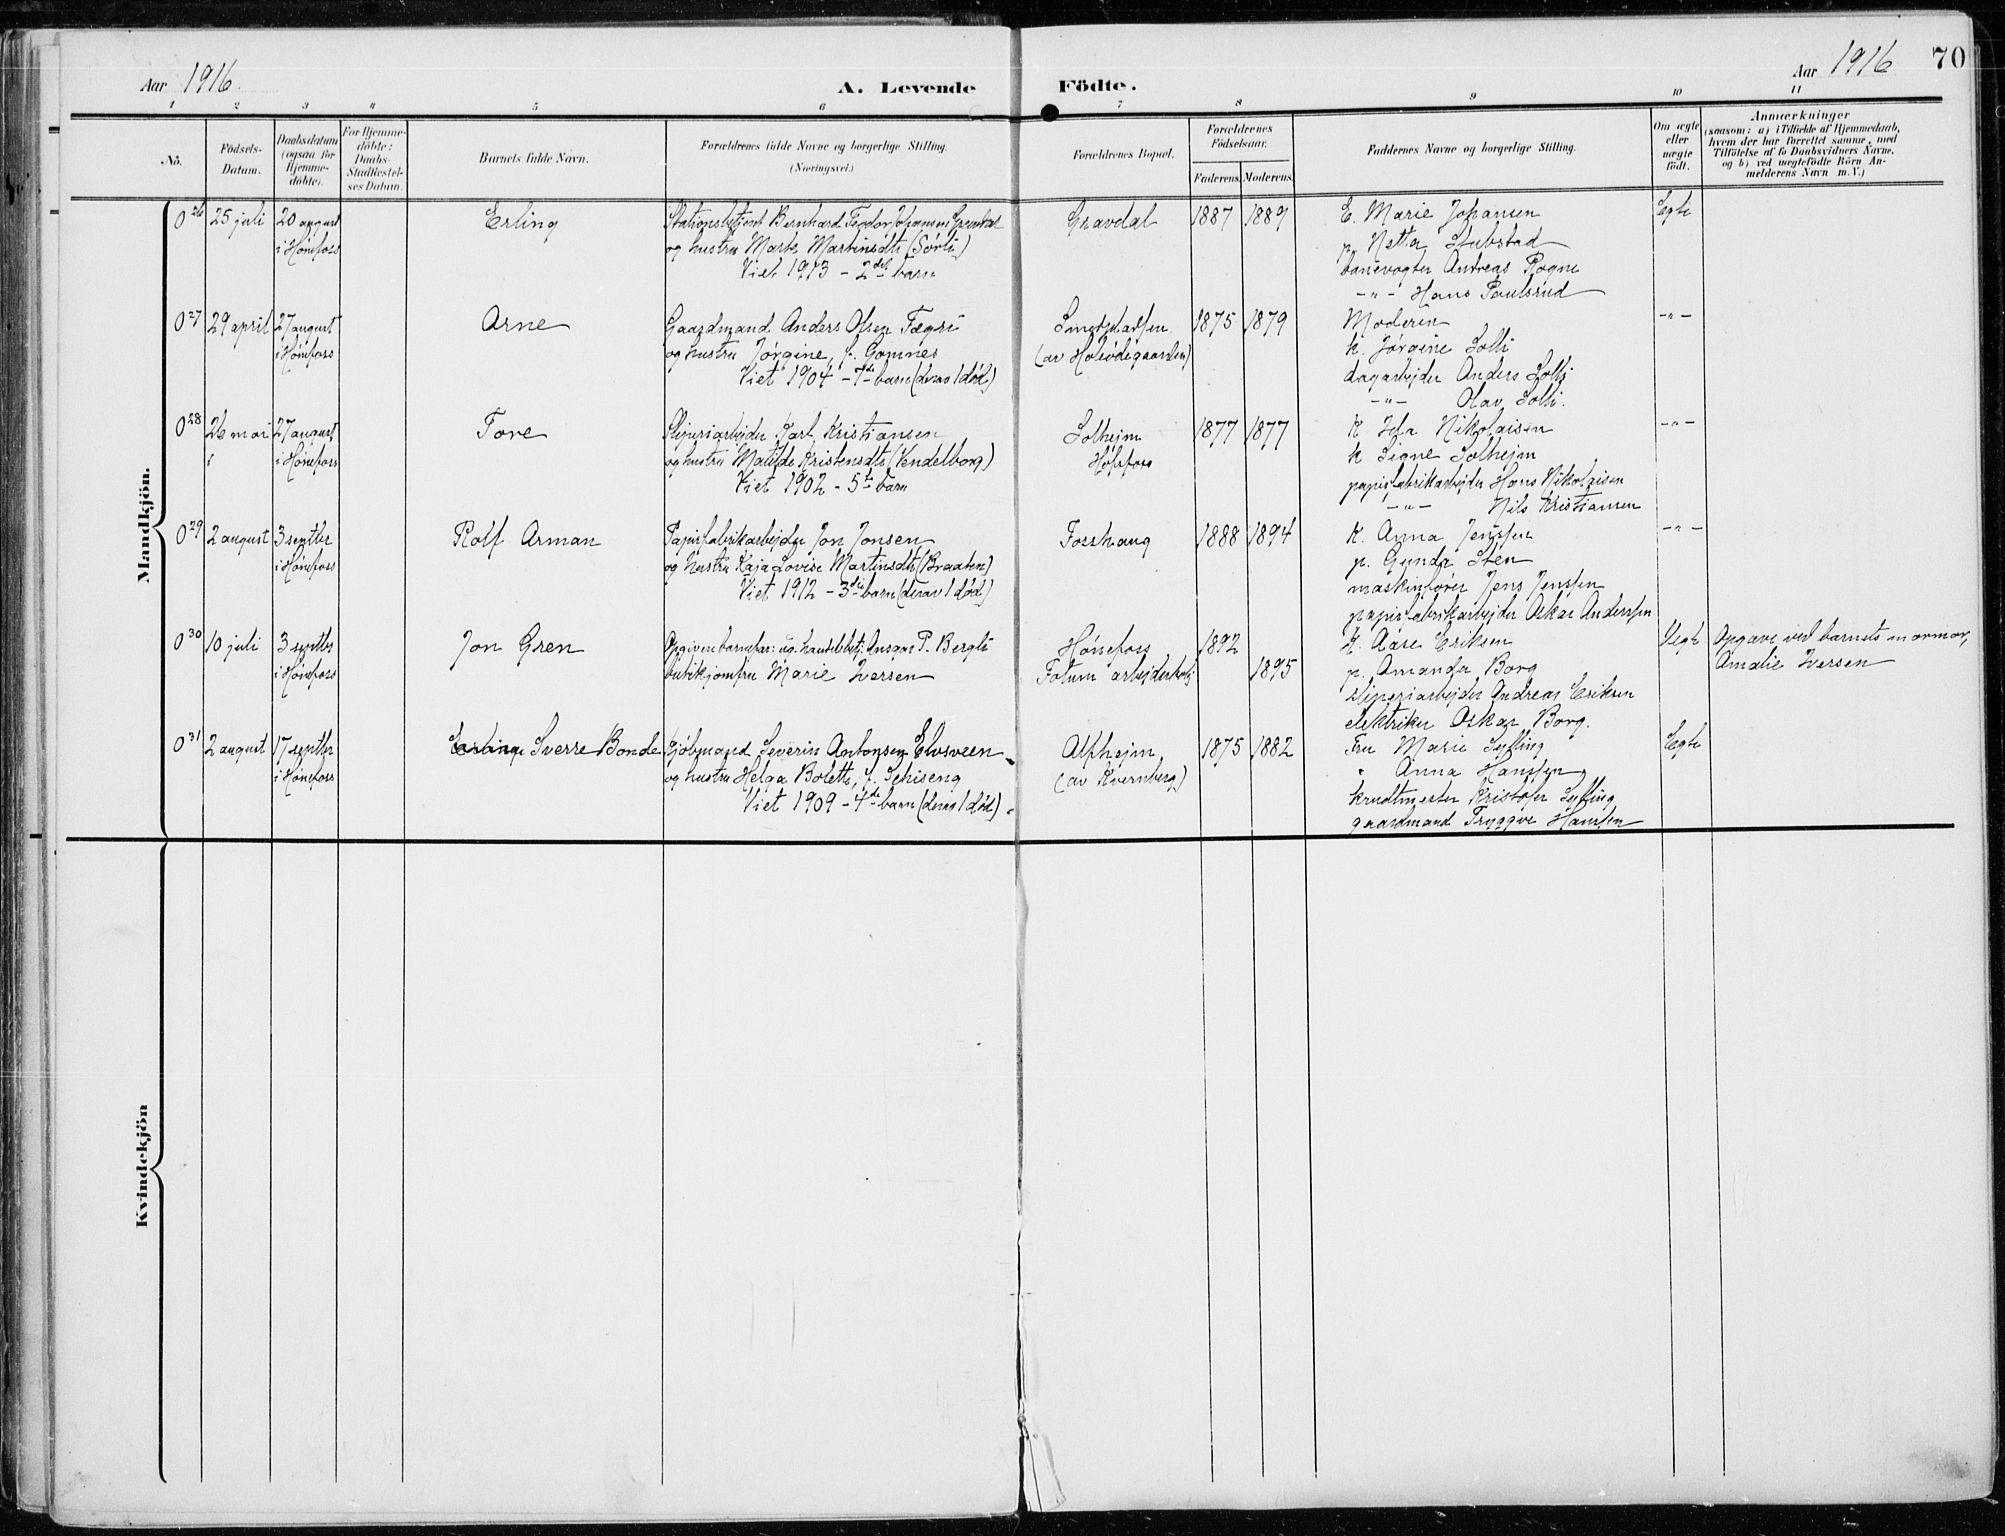 Aar 1916.
A. Levende Födte.
Aar 1916
70
1 2 3 4 5 6 7 8 9 10 11
No.
Födsels-Datum.
Daabsdatum (ogsaa for Hjemme-döbte).
For Hjemme-döbte: Daabs-Stadfæstel-ses Datum.
Barnets fulde Navn.
Forældrenes fulde Navne og borgerlige Stilling. (Næringsvei.)
Forældrenes Bopæl.
Forældrenes Födselsaar.
Faderens. Moderens.
Faddernes Navne og borgerlige Stilling.
Om ægte eller uægte födt.
Anmærkninger
(saasom: a) i Tilfælde af Hjemmedaab, hvem der har forrettet samme, med Tilföielse af to Daabsvidners Navne, og b) ved uægtefödte Börn An-melderens Navn m. V.)
Mandkjön.
26 25 juli 20 august i Hönefoss
Erling
Stationsbetjent Bernhard Teodor Johansen
og hustru Marte Martinsdtr (Sørli)
Viet 1913 – 2det barn
Gravdal 1887 1889
E. Marie Johansen
p. Netta Stubstad
banevogter Andreas Rogne
–„– Hans Paulsrud
Egte
27 29 april 27 august i Hönefoss
Arne
Gaardmand Anders Olsen Fægri
og hustru Jørgine, f. Gomnes
Viet 1904 – 7de barn (derav 1 död)
1875 1879
Moderen
k. Jørgine Solli
dagarbejder Anders Solli
–„– Olav Solli.
–„–
28 26 mai 27 august i Hönefoss
Tore
Sliperiarbejder Karl Kristiansen
og hustru Matilde Kristensdtr (Vendelborg)
Viet 1902 – 5te barn
Solhejm
Hofsfoss
1877 1877
k Ida Nikolaisen
k Signe Solhejm
papirfabrikarbejder Hans Nikolaisen
–„– Nils Kristiansen
–„–
29 2 august 3 septbr i Hönefoss
Rolf Arman
Papirfabrikarbejder Jon Jonsen
og hustru Kaja Lovise Martinsdtr (Braaten)
Viet 1912 – 3die barn (derav 1 död)
Fosshaug 1888 1894
k. Anna Jenssen
p. Gunda Sten
maskinfører Jens Jenssen
papirfabrikarbejder Oskar Anderssen
–„–
30 10 juli 3 septbr i Hönefoss
Jon Gren
Opgiven barnefar: ug. handelsbetj. Ansgar P. Bergli
butikjomfru Marie Iversen
Hönefoss 1892
1895
k. Aase Eriksen
p. Amanda Borg
sliperiarbejder Andreas Eriksen
elektriker Oskar Borg.
Uegte
Opgave ved barnets mormor,
Amalie Iversen
31 2 august 17 septbr i Hönefoss
Erling Sverre Bonde
Kjöbmand Severin Antonsen Elvsveen
og hustru Helga Bolette, f. Schiseng
Viet 1909 – 4de barn (derav 1 död)
Alfhejm
(av Kvernberg)
1875 1882
Fru Marie Sylling
„ Anna Hanssen
krudtmester Kristofer Sylling
gaardmand Tryggve Hanssen
Egte
Kvindekjön